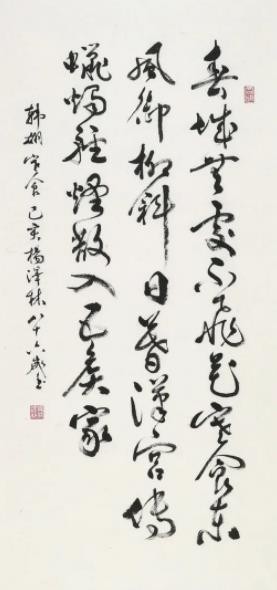 春城無處不飛花寒食東
風御柳斜日暮漢宮傳
蠟燭輕煙散入五侯家
韓翃寒食己亥楊澤林八十六歲書